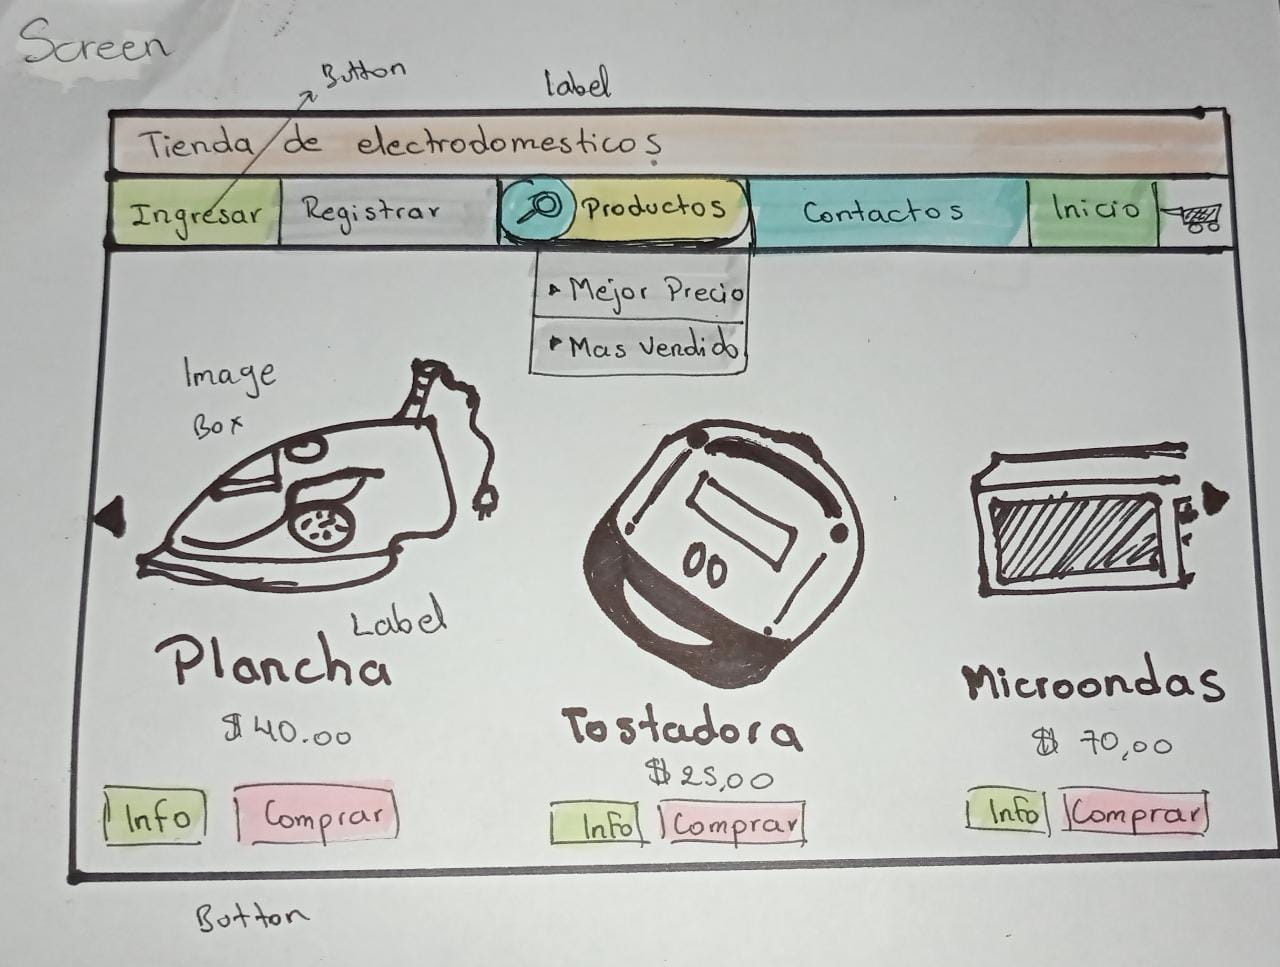 Screen
Button
label
Tienda de electrodomesticos
Ingresar Registrar Productos Contactos Inicio
Mejor Precio
Mas vendido
Image
Box
Label
Plancha
$ 40.00
Tostadora
$ 25,00
Microondas
$ 70,00
Info Comprar
Info Comprar
Info Comprar
Button